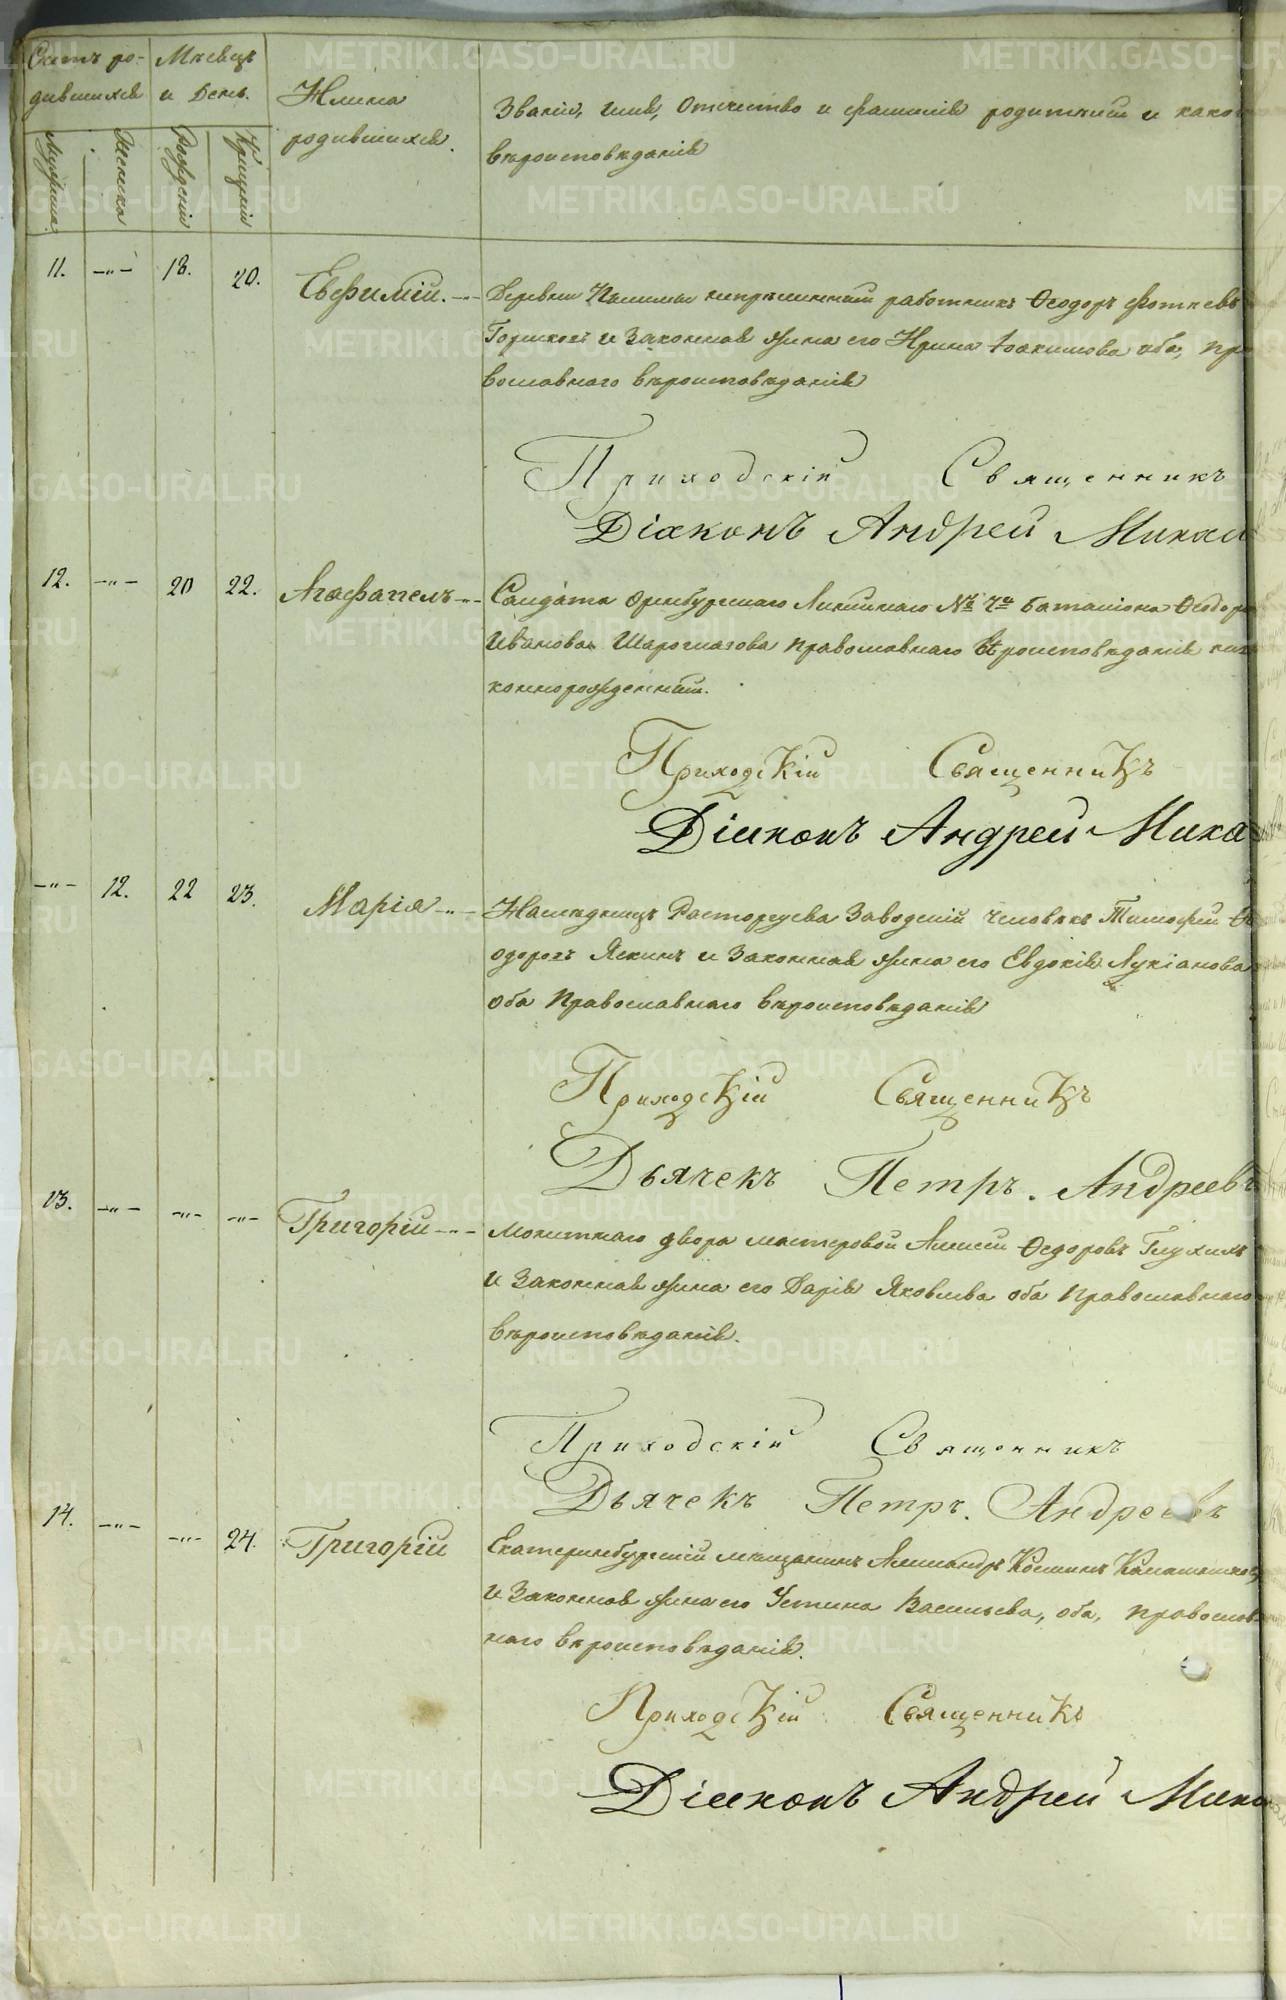 Счетъ ро- Мѣсяцъ
дившихся и День.
Имена
родившихся.
Званіе, имя, Отчество и фамилія родителей и како
вѣроисповѣданія
Мужеска
Женска
Рожденія
Крещенія
11. —"— 18. 20. Евфимій.—"— Деревни непремѣнный работникъ Ѳеодоръ Фотіевъ
и Законная жена его Ирина Іоакимова оба, пра
вославнаго вѣроисповѣданія
Приходскій Священникъ
Діаконъ Андрей
12. —"— 20 22. Агафагелъ—"— Солдата Оренбургскаго Линейнаго № баталіона Ѳеодора
Иванова Шароглазова православнаго Вѣроисповѣданія неза
коннорожденный.
Приходскій Священникъ
Діаконъ Андрей
—"— 12. 22 23. Марія—"— Наслѣдницъ Расторгуева Заводскій человѣкъ Тимофей Ѳе
одоровъ Яскинъ и Законная жена его Евдокія Лукіанова
оба Православнаго вѣроисповѣданія
Приходскій Священникъ
Дьячекъ Петръ. Андреевъ
13. —"— —"— —"— Григорій—"— монетнаго двора мастеровой Алексѣй Ѳедоровъ Глухихъ
и Законная жена его Дарія Яковлева оба Православнаго
вѣроисповѣданія.
Приходскій Священникъ
Дьячекъ Петръ. Андреевъ
14. —"— —"— 24. Григорій Екатеринбургскій мѣщанинъ Александръ Козминъ
и Законная жена его Устина Васильева, оба, православ
наго вѣроисповѣданія.
Приходскій Священникъ
Діаконъ Андрей
METRIKI.GASO-URAL.RU